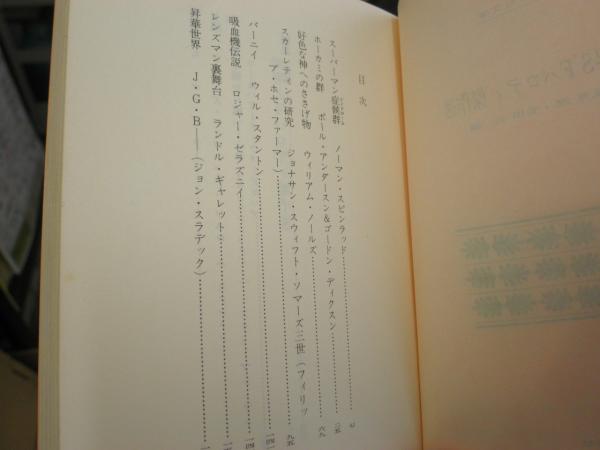 目次
スーパーマン症候群 ノーマン・スピンラッド
ホーカミの群 ポール・アンダースン&ゴードン・ディクスン
好色な神へのささげ物 ウィリアム・ノールズ 六九
スカーレティンの研究 ジョナサン・スウィフト・ソマーズ三世(フィリッ
プ・ホセ・ファーマー) 九五
バーニイ ウィル・スタントン
吸血機伝説 ロジャー・ゼラズニイ
レンズマン裏舞台 ランドル・ギャレット
昇華世界 J・G・B――(ジョン・スラデック)